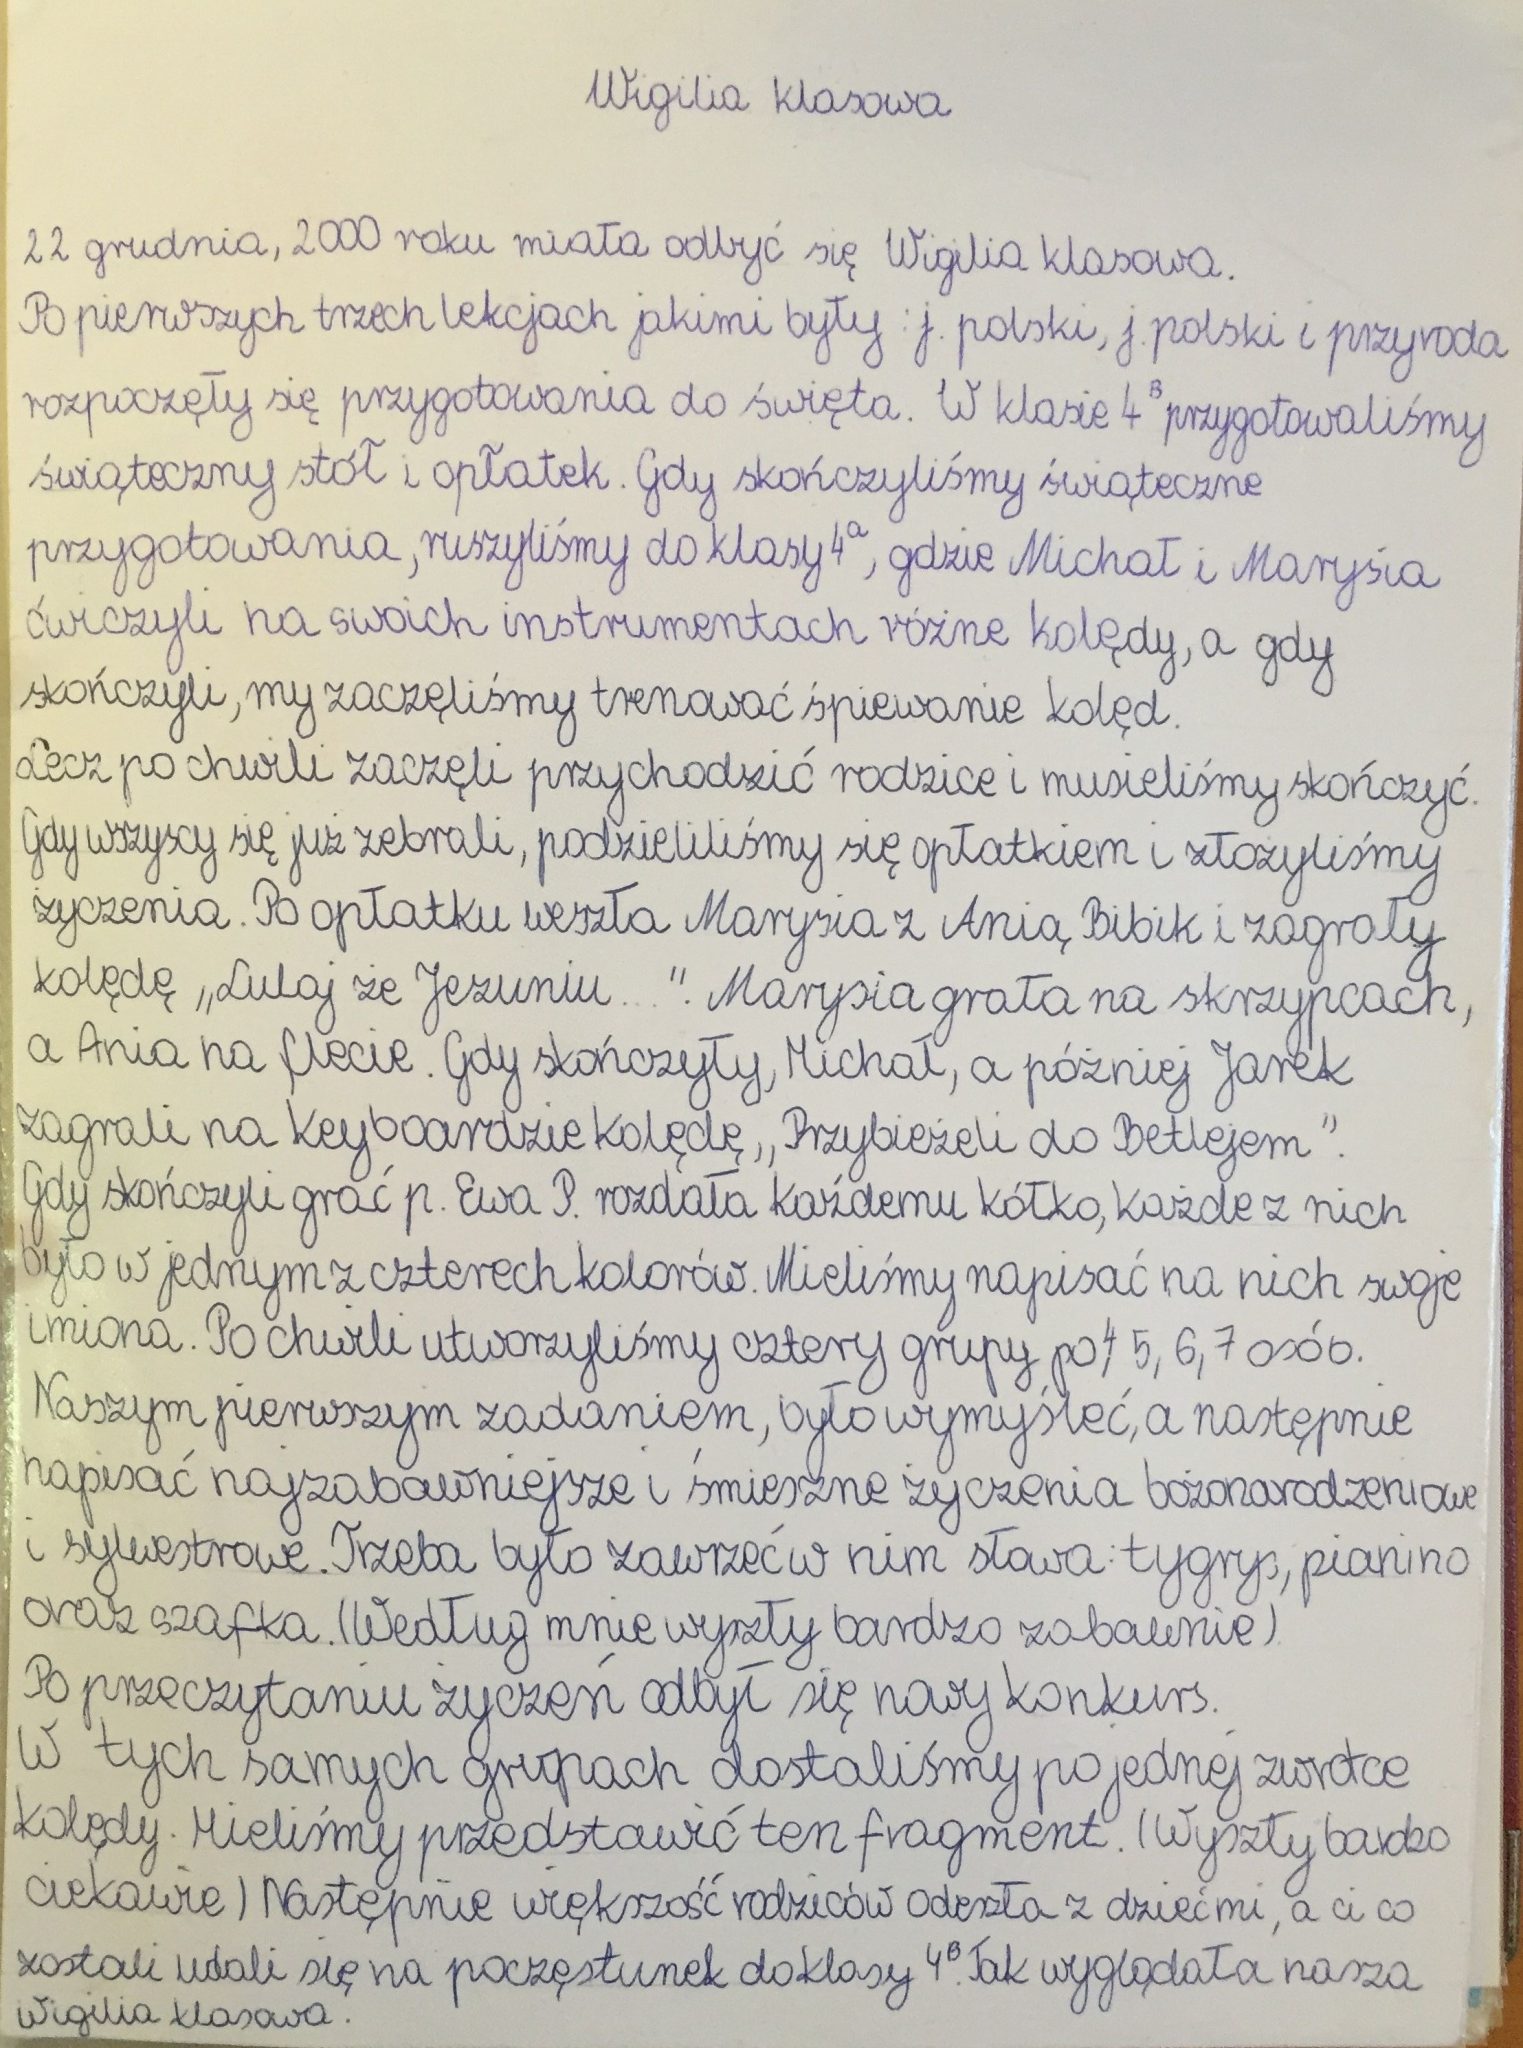 Wigilia klasowa
22 grudnia, 2000 roku miała odbyć się Wigilia klasowa.
Po pierwszych trzech lekcjach jakimi były: j. polski, j. polski i przyroda
rozpoczęły się przygotowania do święta. W klasie 4ᴮ przygotowaliśmy
świąteczny stół i opłatek. Gdy skończyliśmy świąteczne
przygotowania, ruszyliśmy do klasy 4ᵃ, gdzie Michał i Marysia
ćwiczyli na swoich instrumentach różne kolędy, a gdy
skończyli, my zaczęliśmy trenować śpiewanie kolęd.
Lecz po chwili zaczęli przychodzić rodzice i musieliśmy skończyć.
Gdy wszyscy się już zebrali, podzieliliśmy się opłatkiem i złożyliśmy
życzenia. Po opłatku weszła Marysia z Anią Bibik i zagrały
kolędę „Lulaj że Jezuniu...". Marysia grała na skrzypcach,
a Ania na flecie. Gdy skończyły, Michał, a później Jarek
zagrali na keyboardzie kolędę „Przybieżeli do Betlejem".
Gdy skończyli grać p. Ewa P. rozdała każdemu kółko, każde z nich
było w jednym z czterech kolorów. Mieliśmy napisać na nich swoje
imiona. Po chwili utworzyliśmy cztery grupy po 4 5, 6, 7 osób.
Naszym pierwszym zadaniem, było wymyśleć, a następnie
napisać najzabawniejsze i śmieszne życzenia bożonarodzeniowe
i sylwestrowe. Trzeba było zawrzeć w nim słowa: tygrys, pianino
oraz szafka. (Według mnie wyszły bardzo zabawnie)
Po przeczytaniu życzeń odbył się nowy konkurs.
W tych samych grupach dostaliśmy po jednej zwrotce
kolędy. Mieliśmy przedstawić ten fragment. (Wyszły bardzo
ciekawie) Następnie większość rodziców odeszła z dziećmi, a ci co
zostali udali się na poczęstunek do klasy 4ᴮ. Tak wyglądała nasza
Wigilia klasowa.